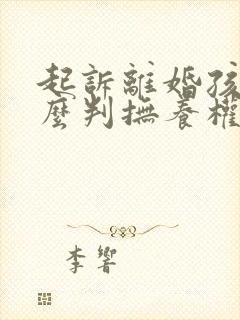 起訴離婚孩
麼判撫養權
李響